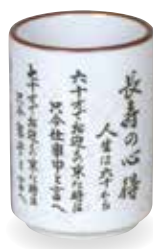 長寿の心得
人生は六十から
六十才でお迎えの来た時は
只今仕事中と言へ
七十才でお迎えの来た時は
只今